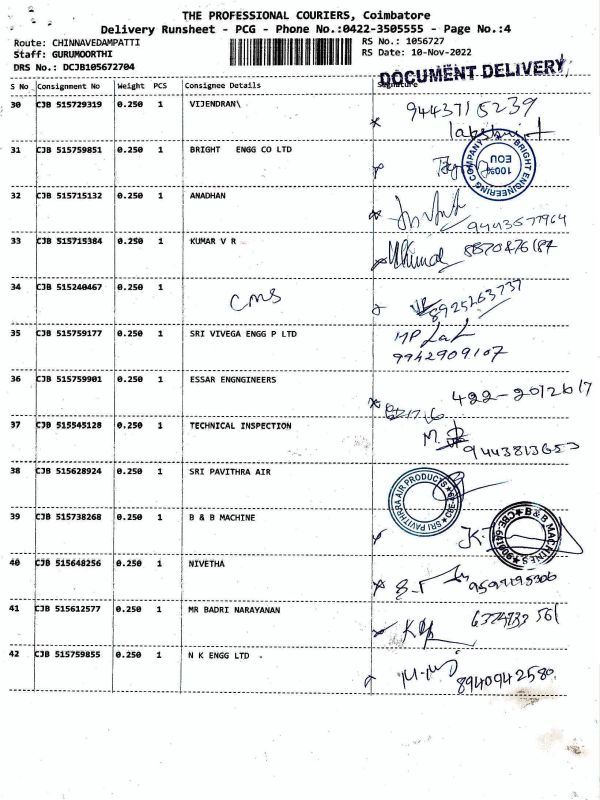 THE PROFESSIONAL COURIERS, Coimbatore
Delivery Runsheet - PCG - Phone No.:0422-3505555 - Page No.:4
Route: CHINNAVEDAMPATTI
RS No.: 1056727
Staff: GURUMOORTHI
RS Date: 10-Nov-2022
DRS No.: DCJB105672704
DOCUMENT DELIVERY
S No Consignment No Weight PCS Consignee Details Signature
30 CJB 515729319 0.250 1 VIJENDRAN\ 9443715239
31 CJB 515759851 0.250 1 BRIGHT ENGG CO LTD
BRIGHT ENGINEERING COMPANY
100% EOU
32 CJB 515715132 0.250 1 ANADHAN
9443577964
33 CJB 515715384 0.250 1 KUMAR V R 8870876184
34 CJB 515240467 0.250 1 CMS 8925263737
35 CJB 515759177 0.250 1 SRI VIVEGA ENGG P LTD MP
9942909107
36 CJB 515759901 0.250 1 ESSAR ENGNGINEERS
422-2012617
37 CJB 515545128 0.250 1 TECHNICAL INSPECTION M.
9443813653
38 CJB 515628924 0.250 1 SRI PAVITHRA AIR
SRI PAVITHRRA AIR PRODUCTS
39 CJB 515738268 0.250 1 B & B MACHINE
B&B MACHINES
40 CJB 515648256 0.250 1 NIVETHA
9597195306
41 CJB 515612577 0.250 1 MR BADRI NARAYANAN
42 CJB 515759855 0.250 1 N K ENGG LTD .
8940942580